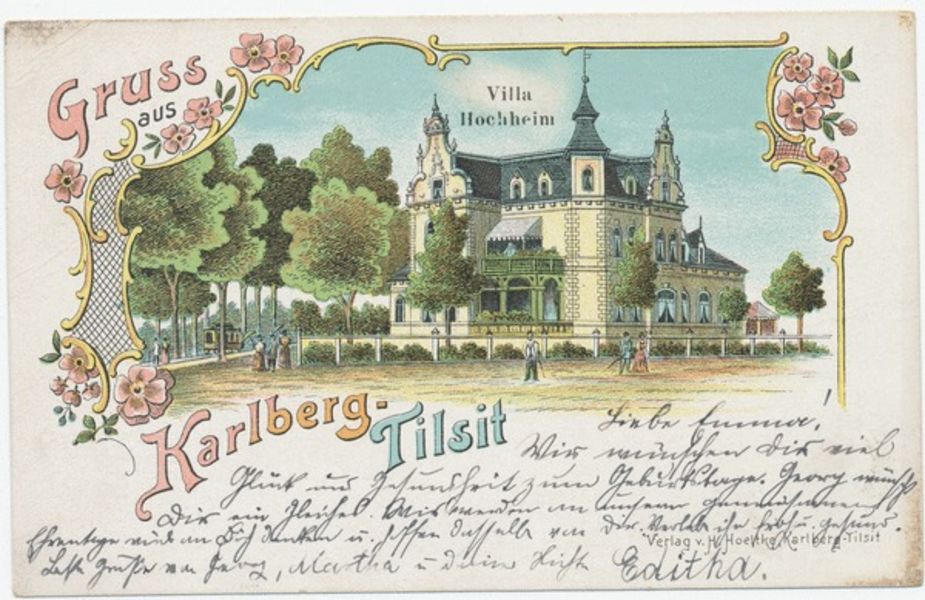 Gruss
aus
Villa
Hochheim
Karlberg-
Tilsit
Liebe Emma!
Wir wünschen Dir viel
Glück und Gesundheit zum Geburtstage. Georg wünscht
Dir ein Gleiches. Wir werden an unserm gemeinsamen
Ehrentage auch an Dich denken u. hoffen dasselbe von Dir. Verlebe ihn froh u. gesund.
Verlag v. H. Hoeltke, Karlberg-Tilsit
Beste Grüße von Georg, Martha u deine Nichte Editha.